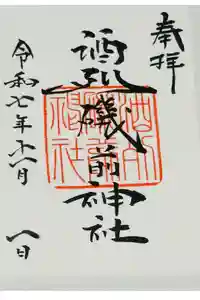 奉拝
酒列磯前神社
令和七年十一月 一日